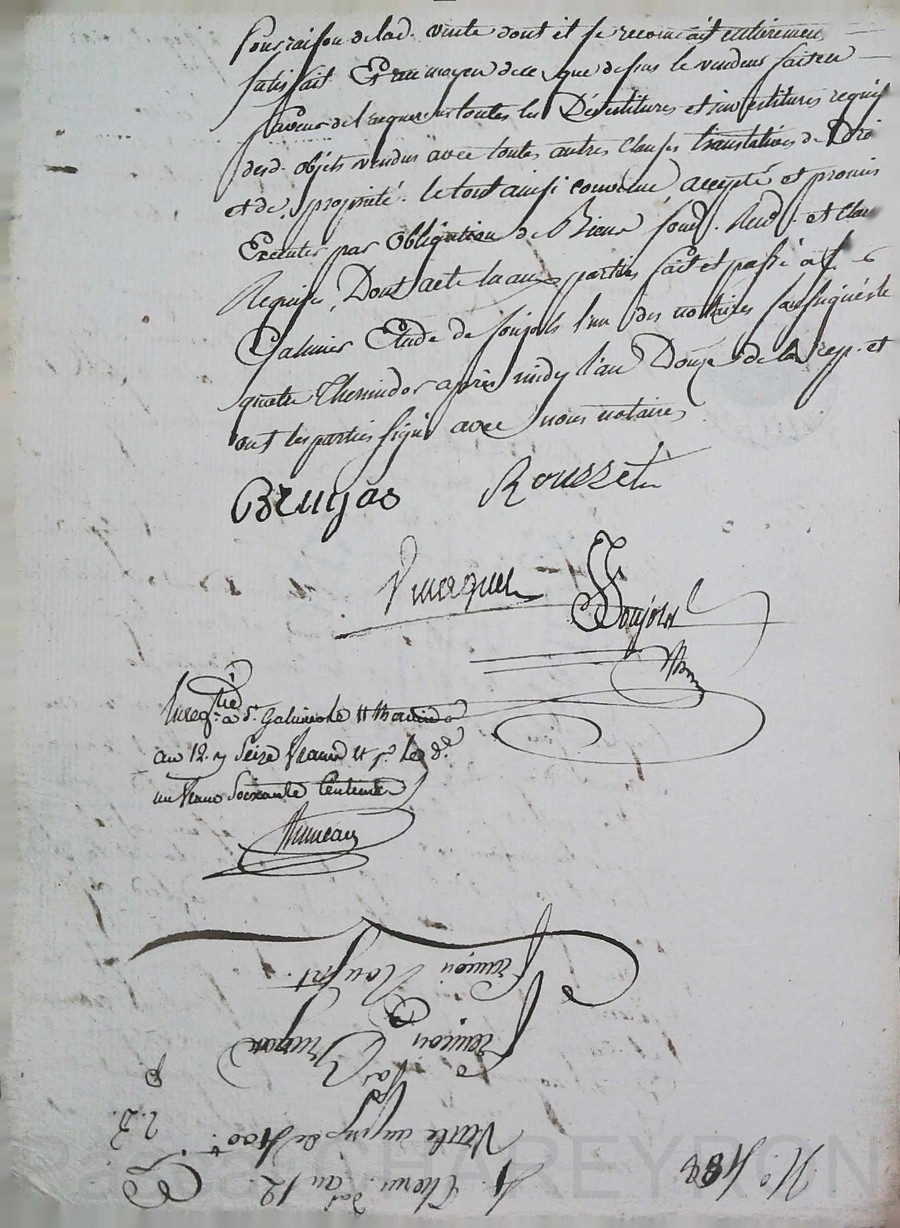 Pour raison de lad. vente dont il se reconnait entieremen
satisfait. Et au moyen de ce que dessus le vendeur fait en
faveur de l'acquereur toutes les Dévestitures et investitures requis
desd. objets vendus avec toutes autres clauses translatives de Droi
et de propriété. le tout ainsi convenu, accepté et promis
Executer par Obligation de Biens, soud. Aud. et Clau
Requise, Dont acte lu aux parties fait et passé à St
Galmier Etude de Soujols l'un des notaires soussignés le
quatre Thermidor après midy l'an Douze de la rep. et
ont les parties signé avec nous notaires
Brugas Rousset
Soujols
Enregtré à St. Galmier le 11 thermidor
an 12. Seize francs et pr. le de.
un franc Soixante Centimes
4. Ther. dor an 12. N°. 488
Vente au prix de 400 tt
Par
François Brugas
à
François Rousset.